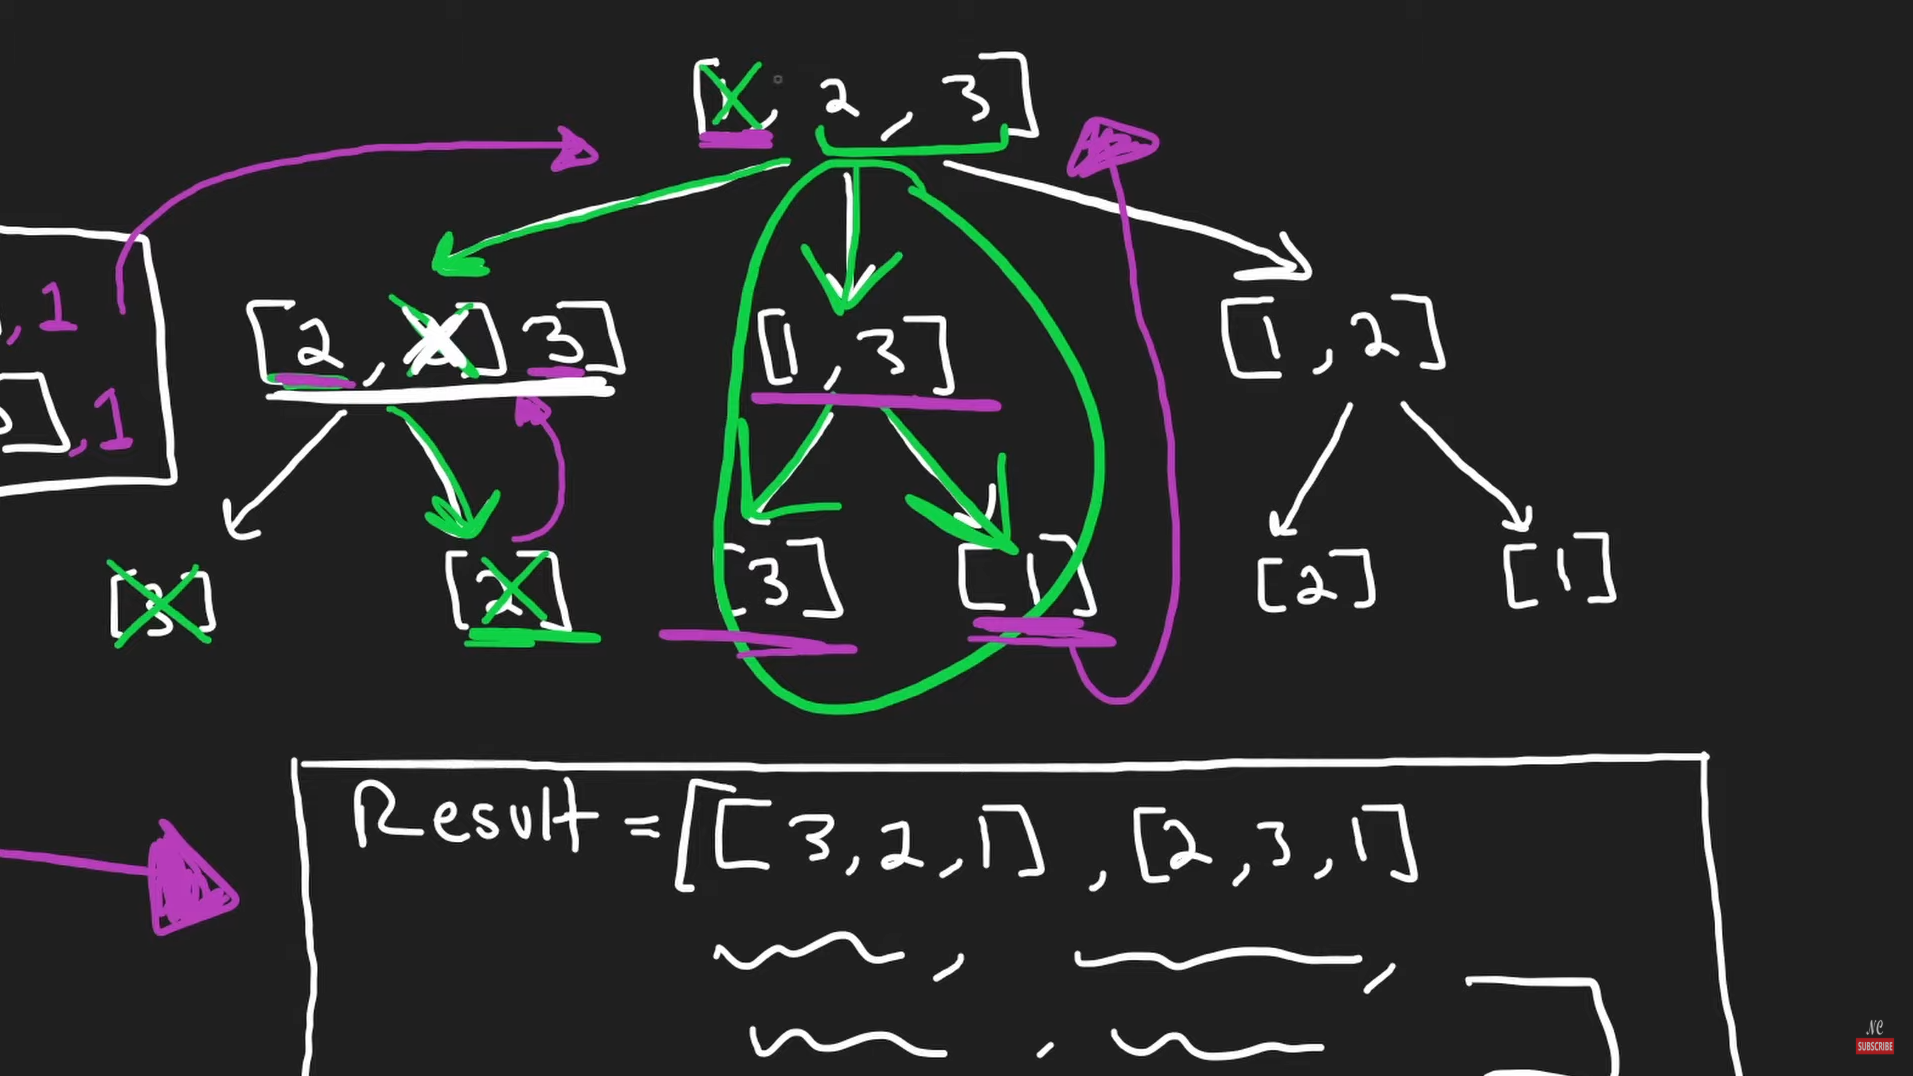 [1, 2, 3]
, 1
[2, 3]
[1, 3]
[1, 2]
], 1
[3]
[2]
[3]
[1]
[2]
[1]
Result = [[3,2,1], [2,3,1]
,
,
,
NC
SUBSCRIBE